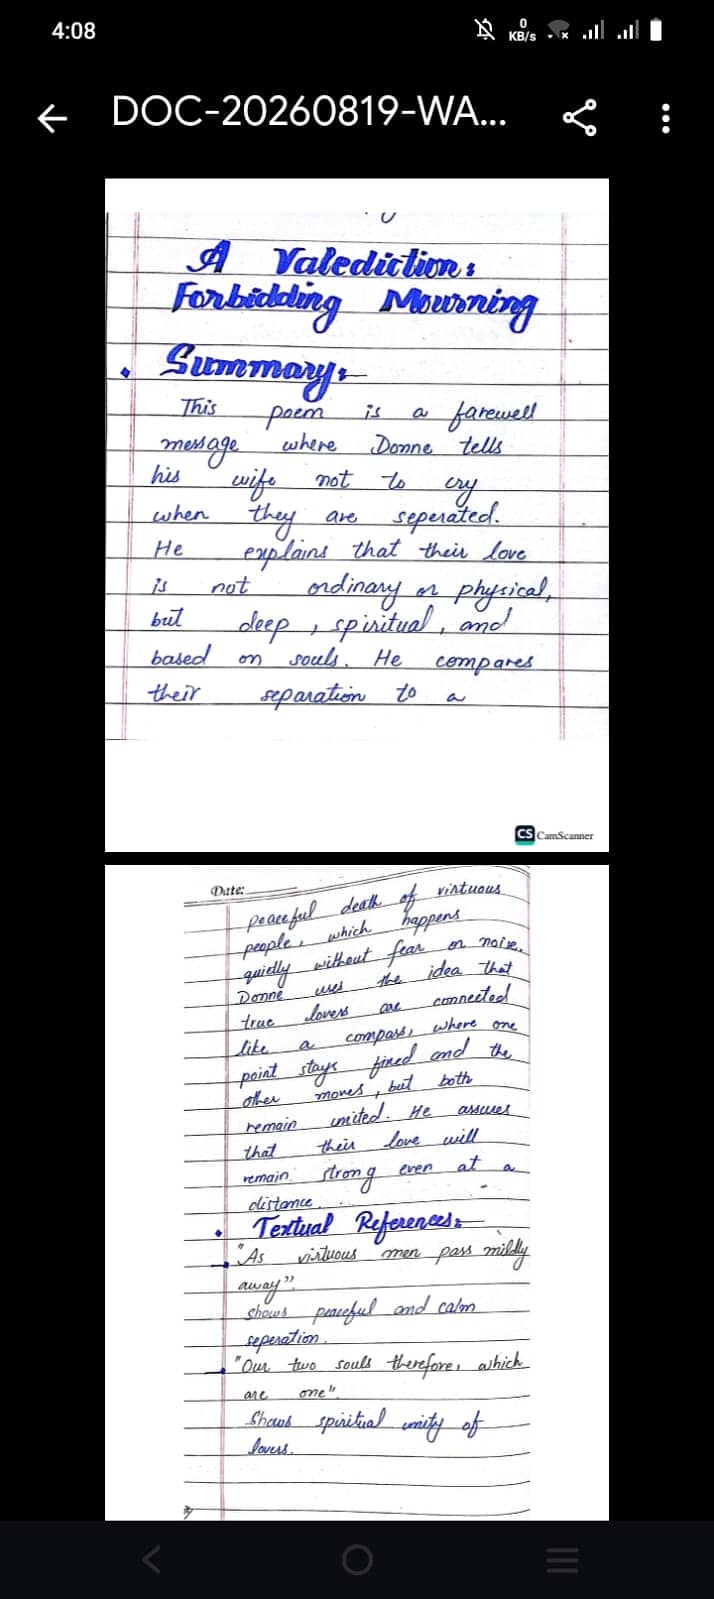 4:08
0
KB/s
DOC-20260819-WA...
A Valediction:
Forbidding Mourning
Summary:
This poem is a farewell
message where Donne tells
his wife not to cry
when they are seperated.
He explains that their love
is not ordinary or physical,
but deep, spiritual, and
based on souls. He compares
their separation to a
CS CamScanner
Date:
peaceful death of virtuous
people, which happens
quietly without fear or noise.
Donne uses the idea that
true lovers are connected
like a compass, where one
point stays fixed and the
other moves, but both
remain united. He assures
that their love will
remain strong even at a
distance.
Textual References:
"As virtuous men pass mildly
away"
Shows peaceful and calm
seperation.
"Our two souls therefore, which
are one".
Shows spiritual unity of
lovers.